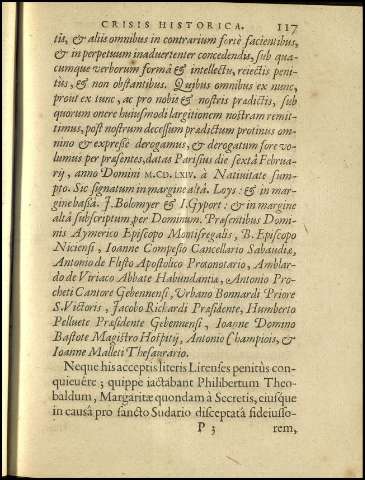 CRISIS HISTORICA. 117
tis, & aliis omnibus in contrarium fortè facientibus,
& in perpetuum inaduertenter concedendis, sub qua-
cumque verborum formâ & intellectu, reiectis peni-
tùs, & non obstantibus. Quibus omnibus ex nunc,
prout ex tunc, ac pro nobis & nostris prædictis, sub
quorum onere huiusmodi largitionem nostram remit-
timus, post nostrum decessum prædictum protinus om-
nino & expressè derogamus, & derogatum fore vo-
lumus per præsentes, datas Parisius die sextâ Februa-
rij, anno Domini M.CD.LXIV. à Natiuitate sum-
pto. Sic signatum in margine altâ. Loys: & in mar-
gine bassâ. J. Bolomyer & I. Gyport: & in margine
altâ subscriptum per Dominum. Præsentibus Domi-
nis Aymerico Episcopo Montisregalis, B. Episcopo
Niciensi, Ioanne Compesio Cancellario Sabaudiæ,
Antonio de Flisto Apostolico Protonotario, Amblar-
do de Viriaco Abbate Habundantiæ, Antonio Pro-
cheti Cantore Gebennensi, Urbano Bonnardi Priore
S. Victoris, Jacobo Rickardi Præsidente, Humberto
Pelluete Præsidente Gebennensi, Ioanne Domino
Bastote Magistro Hospitij, Antonio Champion, &
Ioanne Malleti Thesaurario.
Neque his acceptis literis Lirenses penitùs con-
quieuêre; quippe iactabant Philibertum Theo-
baldum, Margaritæ quondam à Secretis, eiusque
in causâ pro sancto Sudario disceptatâ fideiusso-
P 3 rem,